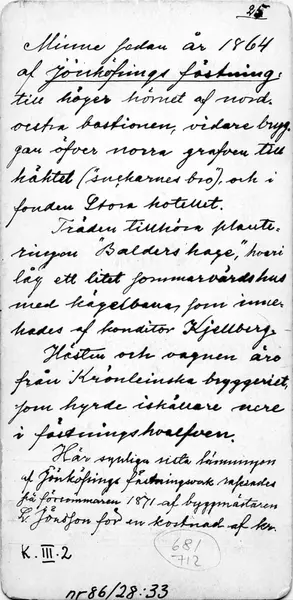 25
Minne sedan år 1864
af Jönköpings fästning:
till höger hörnet af nord-
östra bastionen, vidare bryg-
gan öfver norra grafven till
häktet ("suckarnes bro), och i
fonden Stora hotellet.
Träden tillhöra plante-
ringen "Balders hage," hvari
låg ett litet sommarvärdshus
med kägelbana, som inne-
hades af konditor Kjellberg.
Hästen och vagnen äro
från Krönleinska bryggeriet,
som hyrde iskällare nere
i fästningshvalfven.
Här synliga sista lämningen
af Jönköpings fästningsverk raserades
på försommaren 1871 af byggmästaren
L. Jonsson för en kostnad af kr.
K. III. 2
681/712
nr 86/28:33